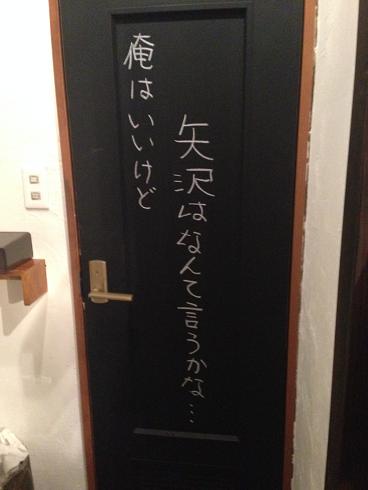 俺はいいけど
矢沢はなんて言うかな…